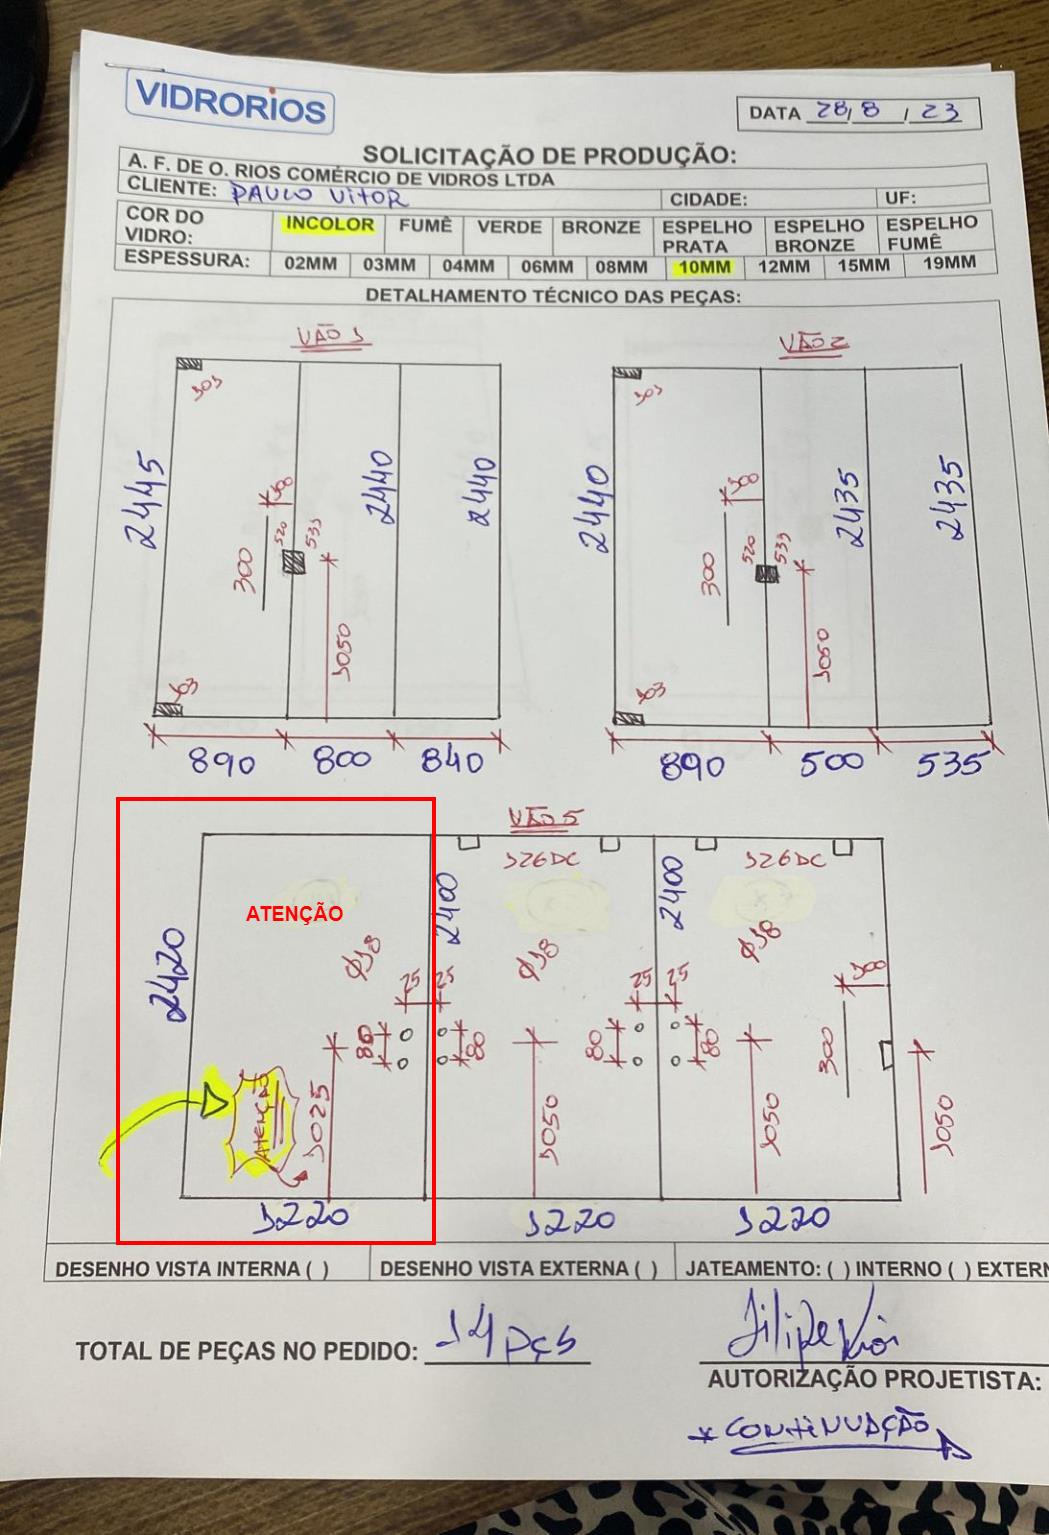 VIDRORIOS
DATA 28/8/23
SOLICITAÇÃO DE PRODUÇÃO:
A. F. DE O. RIOS COMÉRCIO DE VIDROS LTDA
CLIENTE: PAULO VITOR CIDADE: UF:
COR DO VIDRO: INCOLOR FUMÊ VERDE BRONZE ESPELHO PRATA ESPELHO BRONZE ESPELHO FUMÊ
ESPESSURA: 02MM 03MM 04MM 06MM 08MM 10MM 12MM 15MM 19MM
DETALHAMENTO TÉCNICO DAS PEÇAS:
VÃO 1
103
2445
300
520
533
1050
2440
2440
103
890 800 840
VÃO 2
103
2440
300
520
533
1050
2435
2435
103
890 500 535
VÃO 5
ATENÇÃO
2420
Ø18
25
80
ATENÇÃO
1025
1220
2400
126DC
25
80
Ø18
25
80
1050
1220
2400
126DC
25
80
Ø18
1050
300
1050
1220
DESENHO VISTA INTERNA ( ) DESENHO VISTA EXTERNA ( ) JATEAMENTO: ( ) INTERNO ( ) EXTERN
TOTAL DE PEÇAS NO PEDIDO: 14 pçs
AUTORIZAÇÃO PROJETISTA:
* CONTINUAÇÃO